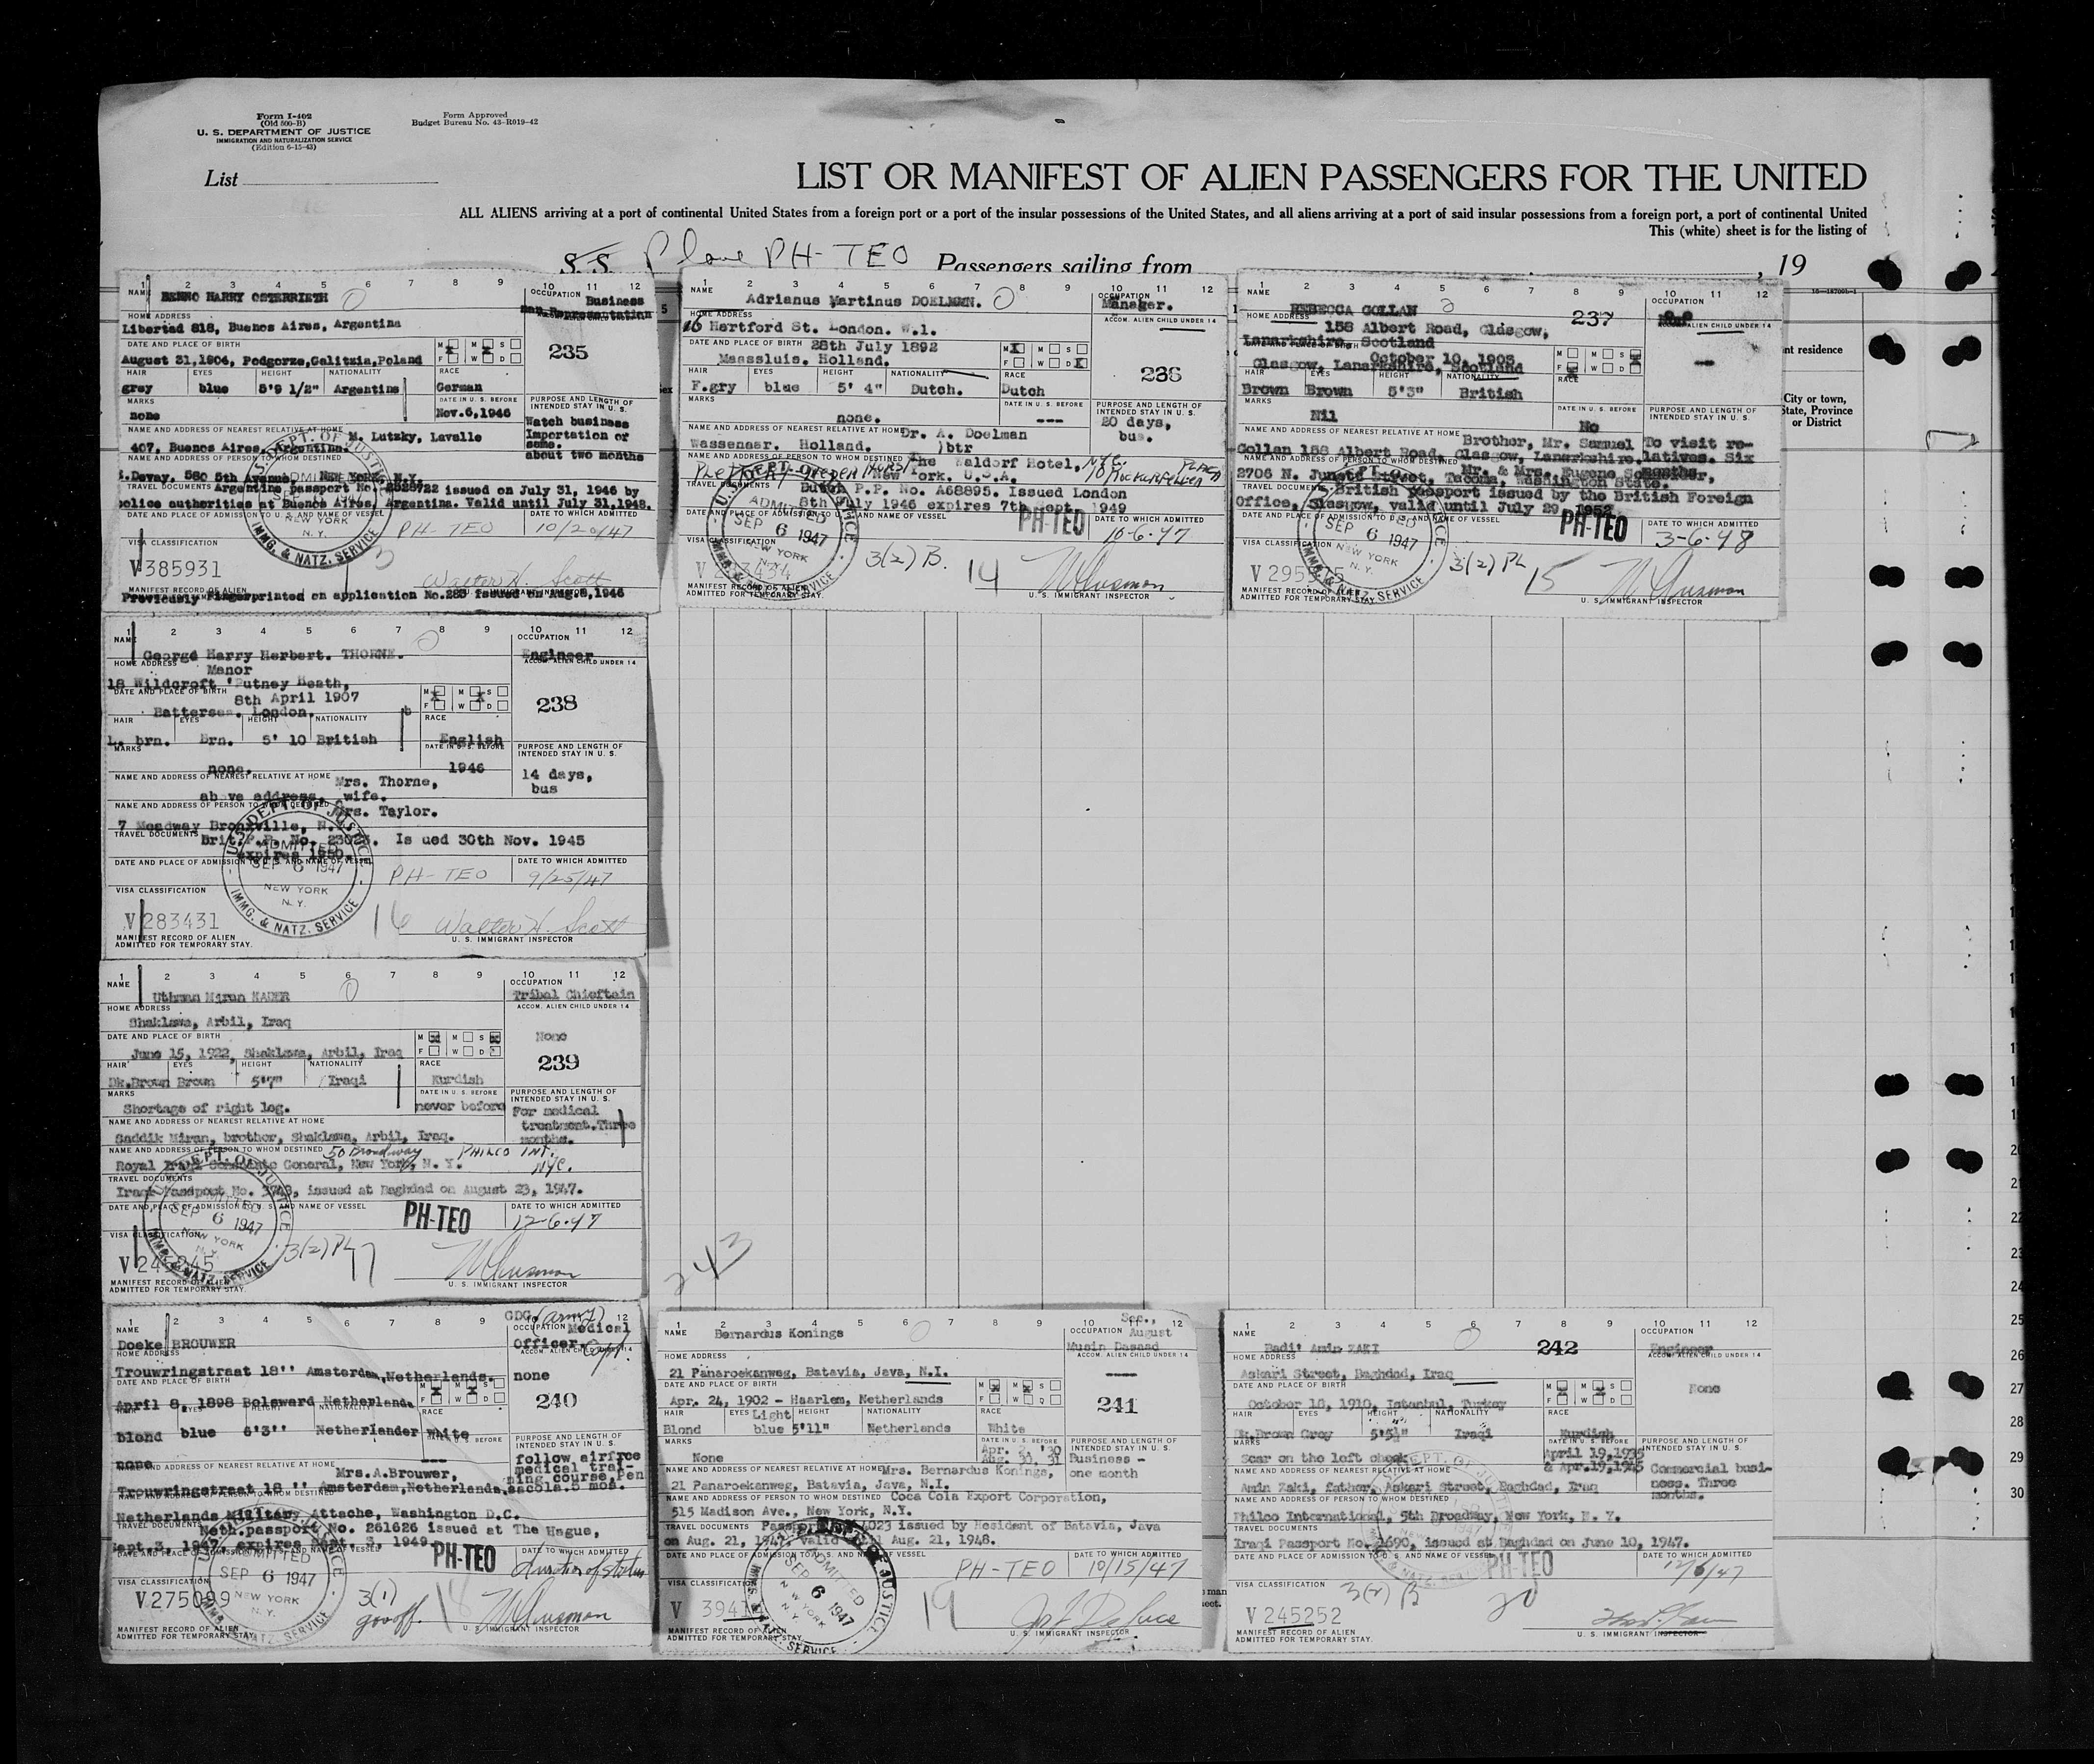 Form I-402
(Old 500-B)
U. S. DEPARTMENT OF JUSTICE
IMMIGRATION AND NATURALIZATION SERVICE
(Edition 6-15-43)
Form Approved
Budget Bureau No. 43-R019-42
List
LIST OR MANIFEST OF ALIEN PASSENGERS FOR THE UNITED
ALL ALIENS arriving at a port of continental United States from a foreign port or a port of the insular possessions of the United States, and all aliens arriving at a port of said insular possessions from a foreign port, a port of continental United
This (white) sheet is for the listing of
S. S. Plane PH-TEO Passengers sailing from , 19
1 2 3 4 5 6 7 8 9 10 11 12
NAME BENNO HARRY OSTERRIETH
OCCUPATION Business
Man Representation
HOME ADDRESS
Libertad 818, Buenos Aires, Argentina
DATE AND PLACE OF BIRTH
August 31,1904, Podgorze,Galitzia,Poland
235
HAIR EYES HEIGHT NATIONALITY RACE
grey blue 5'9 1/2" Argentine German
MARKS none
DATE IN U. S. BEFORE Nov.6,1946
PURPOSE AND LENGTH OF INTENDED STAY IN U. S.
Watch business
Importation of
same.
about two months
NAME AND ADDRESS OF NEAREST RELATIVE AT HOME M. Lutzky, Lavalle
407, Buenos Aires, Argentina.
NAME AND ADDRESS OF PERSON TO WHOM DESTINED
Devay, 580 5th Avenue, New York, N.Y.
TRAVEL DOCUMENTS Argentine passport No. 2528722 issued on July 31, 1946 by
police authorities at Buenos Aires, Argentina. Valid until July 31,1948.
DATE AND PLACE OF ADMISSION TO U. S. AND NAME OF VESSEL PH-TEO
DATE TO WHICH ADMITTED 10/20/47
U.S. DEPT. OF JUSTICE
ADMITTED
NEW YORK
N. Y.
IMMG. & NATZ. SERVICE
VISA CLASSIFICATION
V385931
Walter H. Scott
MANIFEST RECORD OF ALIEN
Previously Fingerprinted on application No.283 issued on Aug.8,1946
1 2 3 4 5 6 7 8 9 10 11 12
NAME Adrianus Martinus DOELMAN.
OCCUPATION Manager.
ACCOM. ALIEN CHILD UNDER 14
HOME ADDRESS
16 Hertford St. London. W.1.
DATE AND PLACE OF BIRTH 28th July 1892
Maassluis. Holland.
236
HAIR EYES HEIGHT NATIONALITY RACE
F.gry blue 5' 4" Dutch. Dutch
MARKS none.
DATE IN U. S. BEFORE ---
PURPOSE AND LENGTH OF INTENDED STAY IN U. S.
20 days,
bus.
NAME AND ADDRESS OF NEAREST RELATIVE AT HOME Dr. A. Doelman
Wassenaar. Holland. )btr
NAME AND ADDRESS OF PERSON TO WHOM DESTINED The Waldorf Hotel, N.Y.C.
New York. U.S.A. 10 Rockefeller Plaza
TRAVEL DOCUMENTS Dutch P.P. No. A68895. Issued London
8th July 1946 expires 7th Sept. 1949
DATE TO WHICH ADMITTED
PH-TEO 10-6-47
ADMITTED
SEP 6 1947
NEW YORK
VISA CLASSIFICATION
3(2) B. 14
MANIFEST RECORD OF ALIEN
ADMITTED FOR TEMPORARY STAY.
U. S. IMMIGRANT INSPECTOR
1 2 3 4 5 6 7 8 9 10 11 12
NAME REBECCA GOLLAN
237
OCCUPATION
ACCOM. ALIEN CHILD UNDER 14
HOME ADDRESS
158 Albert Road, Glasgow,
Lanarkshire, Scotland
October 10, 1903
Glasgow, Lanarkshire, Scotland
HAIR EYES HEIGHT NATIONALITY RACE
Brown Brown 5'3" British
MARKS Nil
DATE IN U. S. BEFORE No
PURPOSE AND LENGTH OF INTENDED STAY IN U. S.
To visit relatives. Six months
NAME AND ADDRESS OF NEAREST RELATIVE AT HOME Brother, Mr. Samuel
Gollan 158 Albert Road, Glasgow, Lanarkshire,
Mr. & Mrs. Eugene
2706 N. Junett Street, Tacoma, Washington State.
TRAVEL DOCUMENTS British passport issued by the British Foreign
Office, Glasgow, valid until July 29, 1952
PH-TEO
DATE TO WHICH ADMITTED 3-6-48
SEP 6 1947
NEW YORK
N. Y.
VISA CLASSIFICATION
3(2) PL 15
MANIFEST RECORD OF ALIEN
ADMITTED FOR TEMPORARY STAY
U. S. IMMIGRANT INSPECTOR
nt residence
City or town,
State, Province
or District
1 2 3 4 5 6 7 8 9 10 11 12
NAME George Harry Herbert. THORNE.
OCCUPATION Engineer
ACCOM. ALIEN CHILD UNDER 14
HOME ADDRESS Manor
18 Wildcroft 'Putney Heath,
DATE AND PLACE OF BIRTH 8th April 1907
Battersea. London.
238
HAIR EYES HEIGHT NATIONALITY RACE
L. brn. Brn. 5' 10 British English
MARKS none.
DATE IN U. S. BEFORE 1946
PURPOSE AND LENGTH OF INTENDED STAY IN U. S.
14 days,
bus
NAME AND ADDRESS OF NEAREST RELATIVE AT HOME Mrs. Thorne,
above address. wife.
NAME AND ADDRESS OF PERSON TO WHOM DESTINED Mrs. Taylor.
7 Meadway Bronxville, N.Y.
TRAVEL DOCUMENTS Brit.P.P. No. 23023. Is ued 30th Nov. 1945
expires 1950.
DATE AND PLACE OF ADMISSION TO U. S. AND NAME OF VESSEL PH-TEO
DATE TO WHICH ADMITTED 9/25/47
U.S. DEPT. OF JUSTICE
ADMITTED
SEP 6 1947
NEW YORK
N. Y.
IMMG. & NATZ. SERVICE
VISA CLASSIFICATION
V283431 16
Walter H. Scott
MANIFEST RECORD OF ALIEN
ADMITTED FOR TEMPORARY STAY.
U. S. IMMIGRANT INSPECTOR
1 2 3 4 5 6 7 8 9 10 11 12
NAME Uthman Miran KADER
OCCUPATION Tribal Chieftain
ACCOM. ALIEN CHILD UNDER 14
HOME ADDRESS
Shaklawa, Arbil, Iraq
None
DATE AND PLACE OF BIRTH
June 15, 1922, Shaklawa, Arbil, Iraq
239
HAIR EYES HEIGHT NATIONALITY RACE
Dk.Brown Brown 5'7" Iraqi Kurdish
MARKS
Shortage of right leg.
DATE IN U. S. BEFORE
never before
PURPOSE AND LENGTH OF INTENDED STAY IN U. S.
For medical
treatment.Three
months.
NAME AND ADDRESS OF NEAREST RELATIVE AT HOME
Saddik Miran, brother, Shaklawa, Arbil, Iraq.
NAME AND ADDRESS OF PERSON TO WHOM DESTINED 50 Broadway PHILCO INT.
Royal Iraqi Consulate General, New York, N. Y. NYC.
TRAVEL DOCUMENTS
Iraqi Passport No. issued at Baghdad on August 23, 1947.
DATE AND PLACE OF ADMISSION TO U. S. AND NAME OF VESSEL
PH-TEO
DATE TO WHICH ADMITTED 12-6-47
SEP 6 1947
NEW YORK
N. Y.
VISA CLASSIFICATION
3(2) PL 17
MANIFEST RECORD OF ALIEN
ADMITTED FOR TEMPORARY STAY.
U. S. IMMIGRANT INSPECTOR
243
CDG (army)
NAME Doeke BROUWER
OCCUPATION Medical
Officer
HOME ADDRESS
Trouwringstraat 18'' Amsterdam,Netherlands.
none
DATE AND PLACE OF BIRTH
April 8, 1898 Bolsward Netherlands
240
blond blue 6'3'' Netherlander White
none
PURPOSE AND LENGTH OF INTENDED STAY IN U. S.
follow airfrce
medical trai-
ning course,Pen
sacola.5 mos.
NAME AND ADDRESS OF NEAREST RELATIVE AT HOME
Mrs.A.Brouwer,
Trouwringstraat 18 '' Amsterdam,Netherlands,
Netherlands Military Attache, Washington D.C.
TRAVEL DOCUMENTS Neth.passport No. 261626 issued at The Hague,
Sept.3, 1947, expires Sept. 3, 1949
PH-TEO
DATE TO WHICH ADMITTED duration of status
ADMITTED
SEP 6 1947
NEW YORK
N. Y.
VISA CLASSIFICATION
V275099
3(1) govoff. 18
MANIFEST RECORD OF ALIEN
ADMITTED FOR TEMPORARY STAY.
U. S. IMMIGRANT INSPECTOR
1 2 3 4 5 6 7 8 9 10 11 12
NAME Bernardus Konings
OCCUPATION Sec., August
Musin Dasaad
ACCOM. ALIEN CHILD UNDER 14
HOME ADDRESS
21 Panaroekanweg, Batavia, Java, N.I.
DATE AND PLACE OF BIRTH
Apr. 24, 1902 - Haarlem, Netherlands
241
HAIR EYES HEIGHT NATIONALITY RACE
Blond Light blue 5'11" Netherlands White
MARKS None
DATE IN U. S. BEFORE
Apr. 2, '30
Aug. 30, 31
PURPOSE AND LENGTH OF INTENDED STAY IN U. S.
Business -
one month
NAME AND ADDRESS OF NEAREST RELATIVE AT HOME Mrs. Bernardus Konings,
21 Panaroekanweg, Batavia, Java, N.I.
NAME AND ADDRESS OF PERSON TO WHOM DESTINED Coca Cola Export Corporation,
515 Madison Ave., New York, N.Y.
TRAVEL DOCUMENTS issued by Resident of Batavia, Java
on Aug. 21, 1947, valid Aug. 21, 1948.
PH-TEO
DATE TO WHICH ADMITTED 10/15/47
ADMITTED
SEP 6 1947
NEW YORK
N. Y.
VISA CLASSIFICATION
19
MANIFEST RECORD OF ALIEN
ADMITTED FOR TEMPORARY STAY.
U. S. IMMIGRANT INSPECTOR
1 2 3 4 5 6 7 8 9 10 11 12
NAME Badi' Amin ZAKI
242
OCCUPATION Engineer
ACCOM. ALIEN CHILD UNDER 14
HOME ADDRESS
Askari Street, Baghdad, Iraq
None
DATE AND PLACE OF BIRTH
October 18, 1910, Istanbul, Turkey
HAIR EYES HEIGHT NATIONALITY RACE
Dk.Brown Grey 5'5½" Iraqi Kurdish
MARKS
Scar on the left cheek
DATE IN U. S. BEFORE
April 19,1935
& Apr.19,1945
PURPOSE AND LENGTH OF INTENDED STAY IN U. S.
Commercial busi-
ness. Three
months.
NAME AND ADDRESS OF NEAREST RELATIVE AT HOME
Amin Zaki, father, Askari Street, Baghdad, Iraq
NAME AND ADDRESS OF PERSON TO WHOM DESTINED
Philco International, 5th Broadway, New York, N. Y.
TRAVEL DOCUMENTS
Iraqi Passport No. 2690, issued at Baghdad on June 10, 1947.
DATE AND PLACE OF ADMISSION TO U. S. AND NAME OF VESSEL
PH-TEO
DATE TO WHICH ADMITTED 12/6/47
VISA CLASSIFICATION
3(2) B 20
V 245252
MANIFEST RECORD OF ALIEN
ADMITTED FOR TEMPORARY STAY.
U. S. IMMIGRANT INSPECTOR
20
21
22
23
24
25
26
27
28
29
30